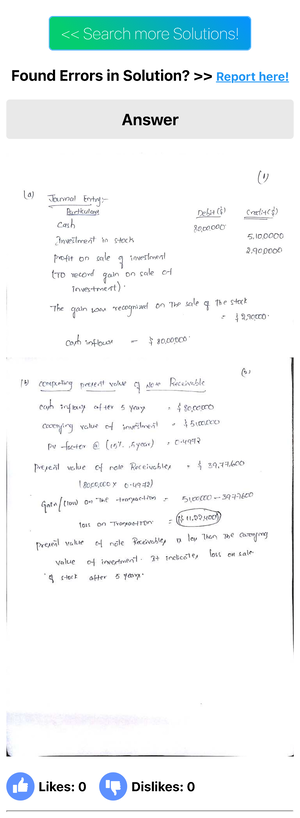 << Search more Solutions!
Found Errors in Solution? >> Report here!
Answer
(1)
(a) Journal Entry:-
Particulars Debit ($) Credit ($)
Cash 80,00,000
Investment in stock 5,10,0000
Profit on sale of investment 2,90,0000
(To record gain on sale of
Investment).
The gain was recognized on the sale of the stock
= $ 2,90000.
Cash inflows = $ 80,00,000.
(b) Computing present value of Note Receivable
Cash inflows after 5 years = $ 80,00,000
carrying value of investment = $ 51,00,000
PV factor @ (15%, 5 year) = 0.4972
Present value of note Receivables = $ 39,77,600
(80,00,000 x 0.4972)
Gain/(loss) on the transaction = 51,00,000 - 3977600
loss on Transaction = ($ 11,22,400)
present value of note Receivables is less than the carrying
value of investment. It indicates loss on sale
of stock after 5 years.
Likes: 0 Dislikes: 0